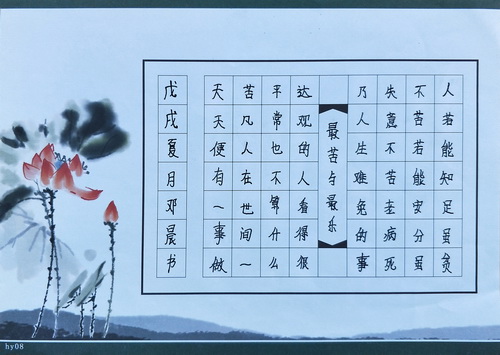 人若能知足虽贫
不苦若能安分虽
失意不苦老病死
乃人生难免的事
最苦与最乐
达观的人看得很
平常也不算什么
苦凡人在世间一
天天便有一事做
戊戌夏月邓晨书
hy08